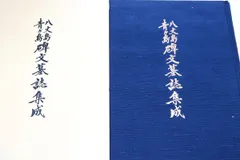 八丈島
青ヶ島
碑文墓誌集成
八丈島
青ヶ島
碑文墓誌集成